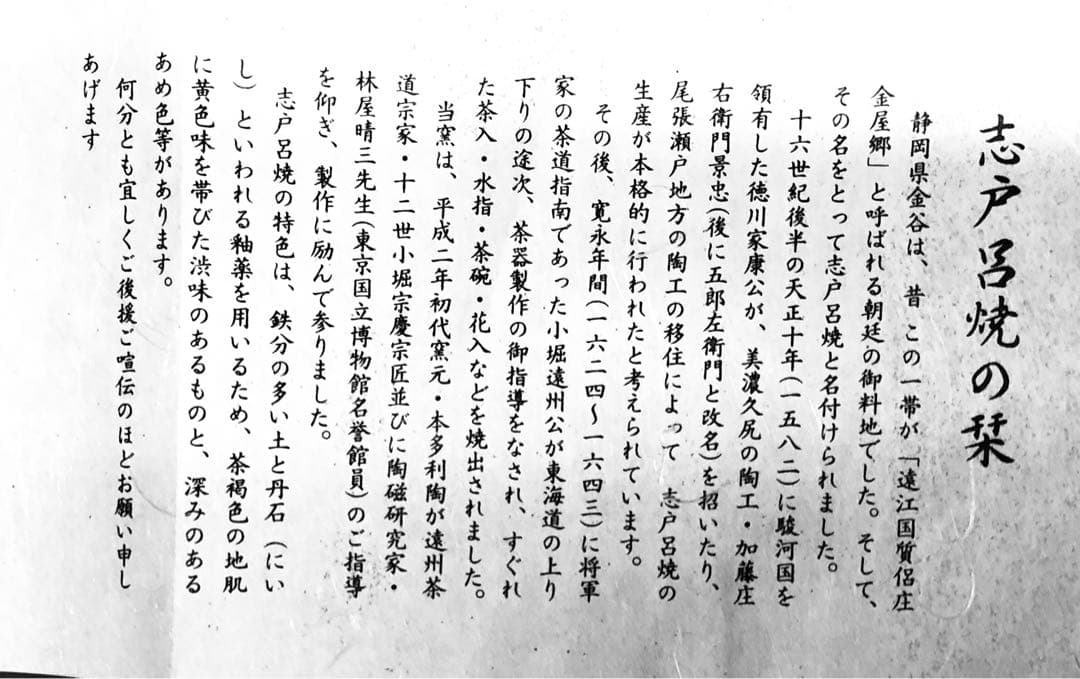 志戸呂焼の栞
静岡県金谷は、昔 この一帯が「遠江国質侶庄
金屋郷」と呼ばれる朝廷の御料地でした。そして、
その名をとって志戸呂焼と名付けられました。
十六世紀後半の天正十年(一五八二)に駿河国を
領有した徳川家康公が、美濃久尻の陶工・加藤庄
右衛門景忠(後に五郎左衛門と改名)を招いたり、
尾張瀬戸地方の陶工の移住によって 志戸呂焼の
生産が本格的に行われたと考えられています。
その後、寛永年間(一六二四〜一六四三)に将軍
家の茶道指南であった小堀遠州公が東海道の上り
下りの途次、茶器製作の御指導をなされ、すぐれ
た茶入・水指・茶碗・花入などを焼出されました。
当窯は、平成二年初代窯元・本多利陶が遠州茶
道宗家・十二世小堀宗慶宗匠並びに陶磁研究家・
林屋晴三先生(東京国立博物館名誉館員)のご指導
を仰ぎ、製作に励んで参りました。
志戸呂焼の特色は、鉄分の多い土と丹石(にい
し)といわれる釉薬を用いるため、茶褐色の地肌
に黄色味を帯びた渋味のあるものと、深みのある
あめ色等があります。
何分とも宜しくご後援ご喧伝のほどお願い申し
あげます